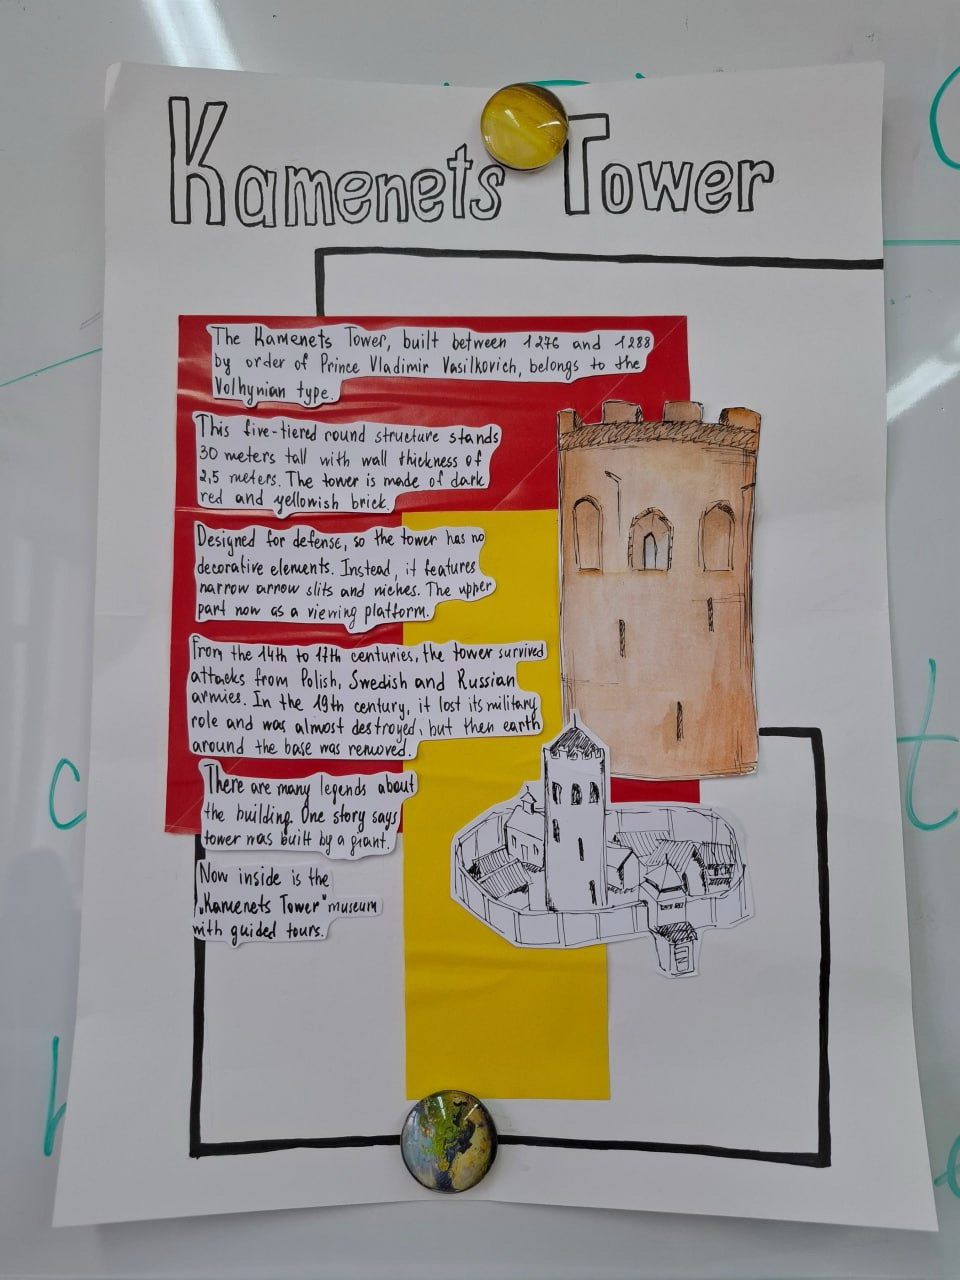 Kamenets Tower
The Kamenets Tower, built between 1276 and 1288
by order of Prince Vladimir Vasilkovich, belongs to the
Volhynian type.
This five-tiered round structure stands
30 meters tall with wall thickness of
2,5 meters. The tower is made of dark
red and yellowish brick.
Designed for defense, so the tower has no
decorative elements. Instead, it features
narrow arrow slits and niches. The upper
part now as a viewing platform.
From the 14th to 17th centuries, the tower survived
attacks from Polish, Swedish and Russian
armies. In the 19th century, it lost its military
role and was almost destroyed, but then earth
around the base was removed.
There are many legends about
the building. One story says
tower was built by a giant.
Now inside is the
„Kamenets Tower" museum
with guided tours.